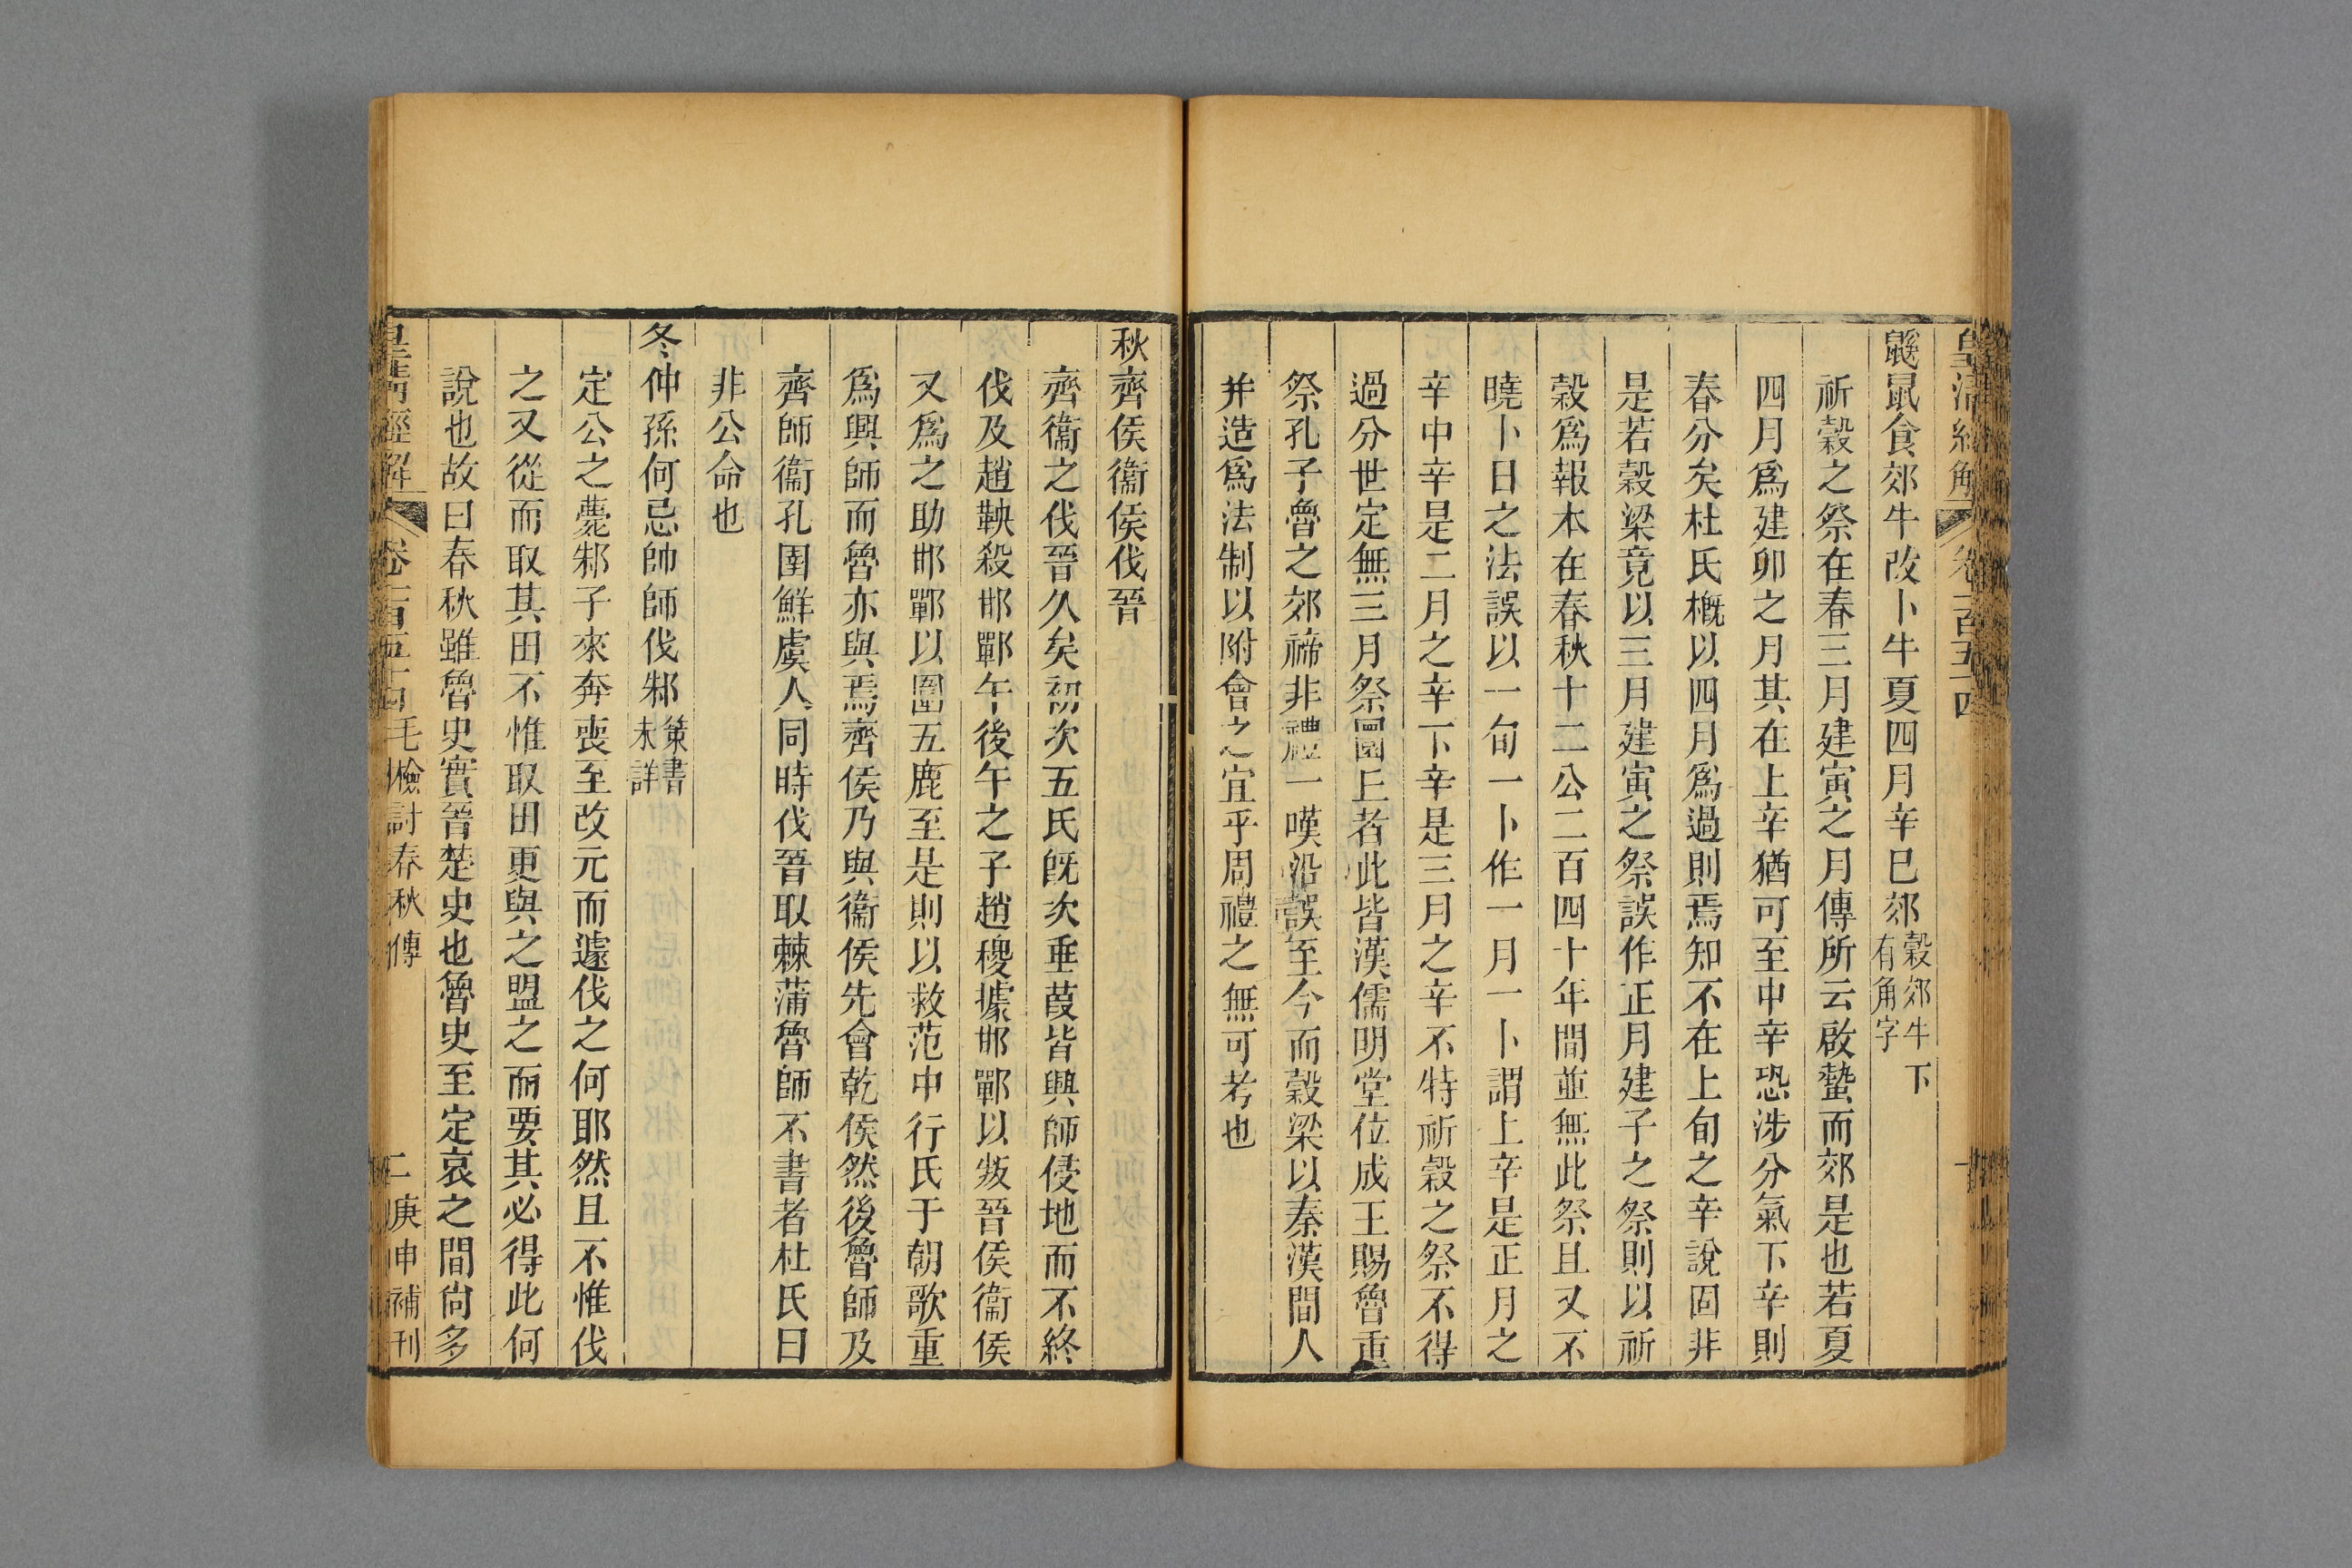 皇清經解 卷一百五十四
鼷鼠食郊牛改卜牛夏四月辛巳郊穀郊牛下有角字
祈穀之祭在春三月建寅之月傳所云啟蟄而郊是也若夏
四月爲建卯之月其在上辛猶可至中辛恐涉分氣下辛則
春分矣杜氏概以四月爲過則焉知不在上旬之辛說固非
是若穀梁竟以三月建寅之祭誤作正月建子之祭則以祈
穀爲報本在春秋十二公二百四十年間並無此祭且又不
曉卜日之法誤以一旬一卜作一月一卜謂上辛是正月之
辛中辛是二月之辛下辛是三月之辛不特祈穀之祭不得
過分世定無三月祭圜丘者此皆漢儒明堂位成王賜魯重
祭孔子魯之郊禘非禮一嘆沿誤至今而穀梁以秦漢間人
并造爲法制以附會之宜乎周禮之無可考也
秋齊侯衞侯伐晉
齊衞之伐晉久矣初次五氏旣次垂葭皆興師侵地而不終
伐及趙鞅殺邯鄲午後午之子趙稷據邯鄲以叛晉侯衞侯
又爲之助邯鄲以圍五鹿至是則以救范中行氏于朝歌重
爲興師而魯亦與焉齊侯乃與衞侯先會乾侯然後魯師及
齊師衞孔圉鮮虞人同時伐晉取棘蒲魯師不書者杜氏曰
非公命也
冬仲孫何忌帥師伐邾策書未詳
定公之薨邾子來奔喪至改元而遽伐之何耶然且不惟伐
之又從而取其田不惟取田更與之盟之而要其必得此何
說也故曰春秋雖魯史實晉楚史也魯史至定哀之間尙多
皇淸經解 卷一百五十四 毛檢討春秋傳 二 庚申補刊